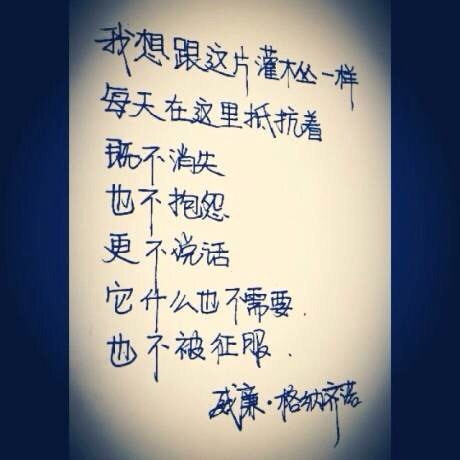 我想跟这片灌木丛一样
每天在这里抵抗着
既不消失
也不抱怨
更不说话
它什么也不需要.
也不被征服.
威廉·格纳齐诺